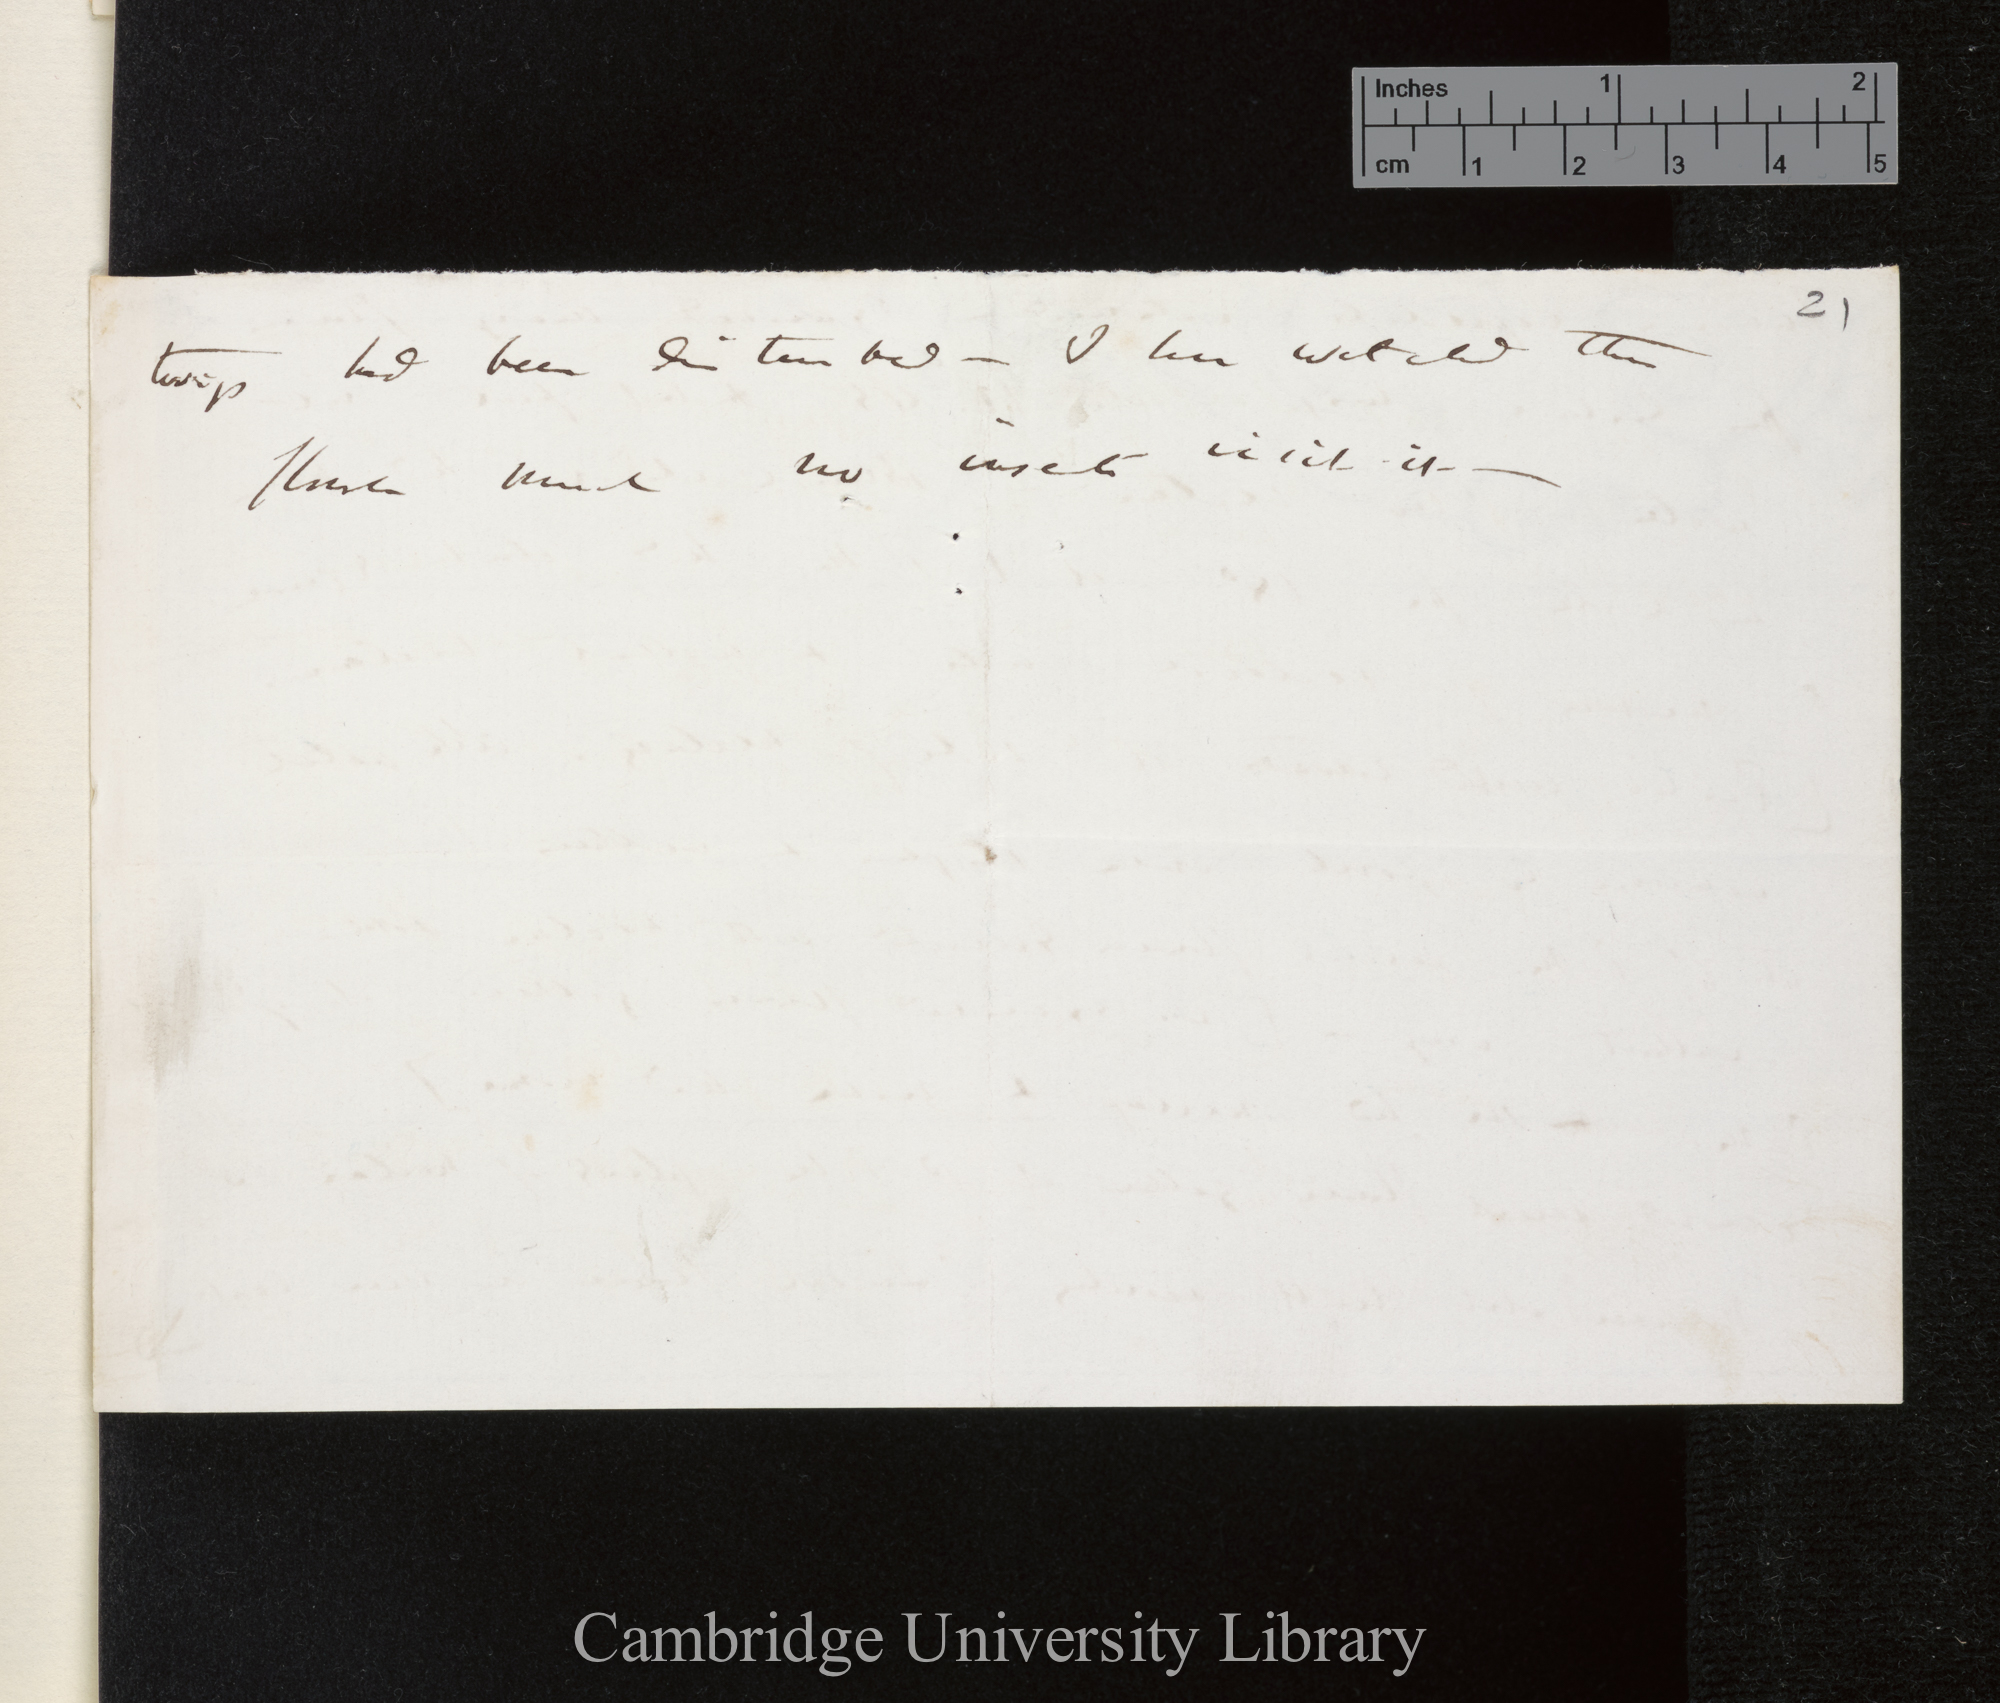 Inches 1 2
cm 1 2 3 4 5
21
twigs had been disturbed — I have watched these
flowers much no insects visit it —
Cambridge University Library